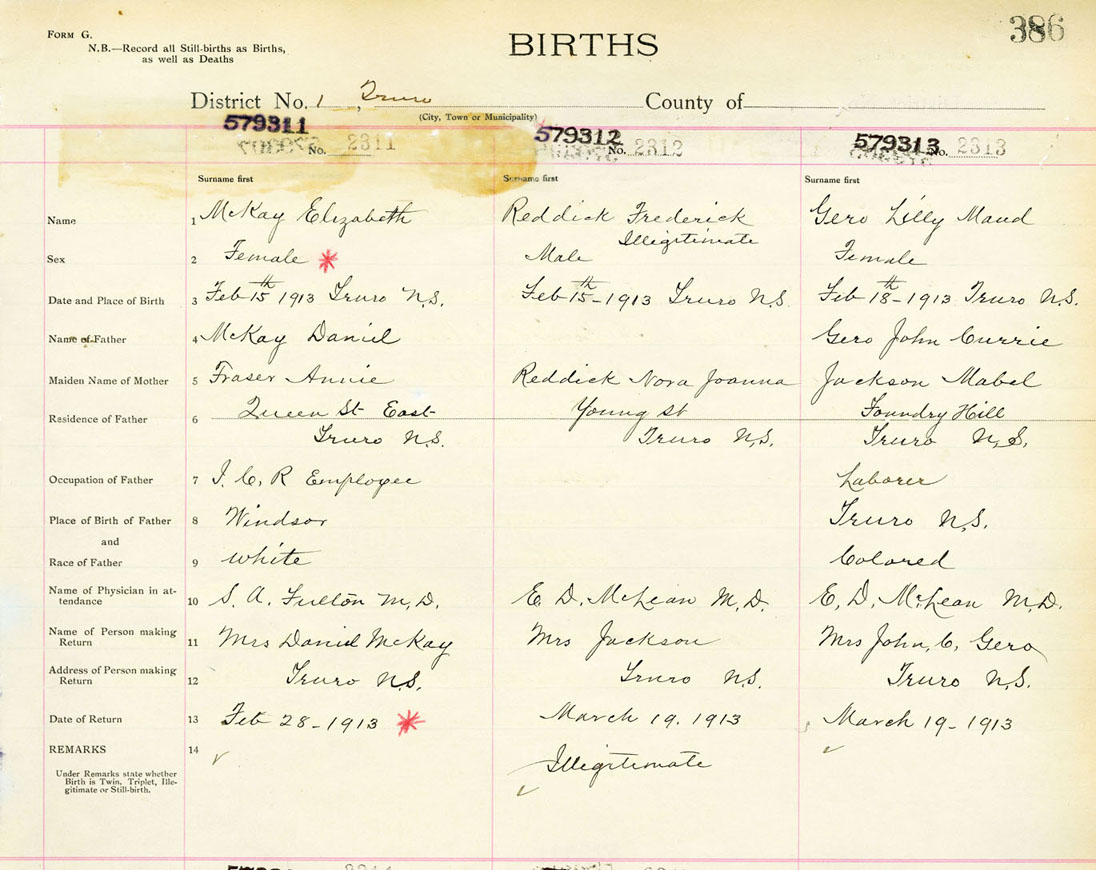 FORM G.
N.B.—Record all Still-births as Births,
as well as Deaths
BIRTHS
386
District No. 1, Truro County of
(City, Town or Municipality)
579311 579312 579313
No. 2311 No. 2312 No. 2313
Surname first Surname first Surname first
Name 1 McKay Elizabeth Reddick Frederick Gero Lilly Maud
Illegitimate
Sex 2 Female * Male Female
Date and Place of Birth 3 Feb 15th 1913 Truro N.S. Feb 15th - 1913 Truro N.S. Feb 18th - 1913 Truro N.S.
Name of Father 4 McKay Daniel Gero John Currie
Maiden Name of Mother 5 Fraser Annie Reddick Nora Joanna Jackson Mabel
Residence of Father 6 Queen St East Young St Foundry Hill
Truro N.S. Truro N.S. Truro N.S.
Occupation of Father 7 I.C.R Employee Laborer
Place of Birth of Father 8 Windsor Truro N.S.
and
Race of Father 9 White Colored
Name of Physician in at-
tendance 10 S. A. Fulton M.D. E. D. McLean M.D. E. D. McLean M.D.
Name of Person making
Return 11 Mrs Daniel McKay Mrs Jackson Mrs John C. Gero
Address of Person making
Return 12 Truro N.S. Truro N.S. Truro N.S.
Date of Return 13 Feb 28 - 1913 * March 19. 1913 March 19 - 1913
REMARKS 14 ✓ Illegitimate ✓ ✓
Under Remarks state whether
Birth is Twin, Triplet, Ille-
gitimate or Still-birth.